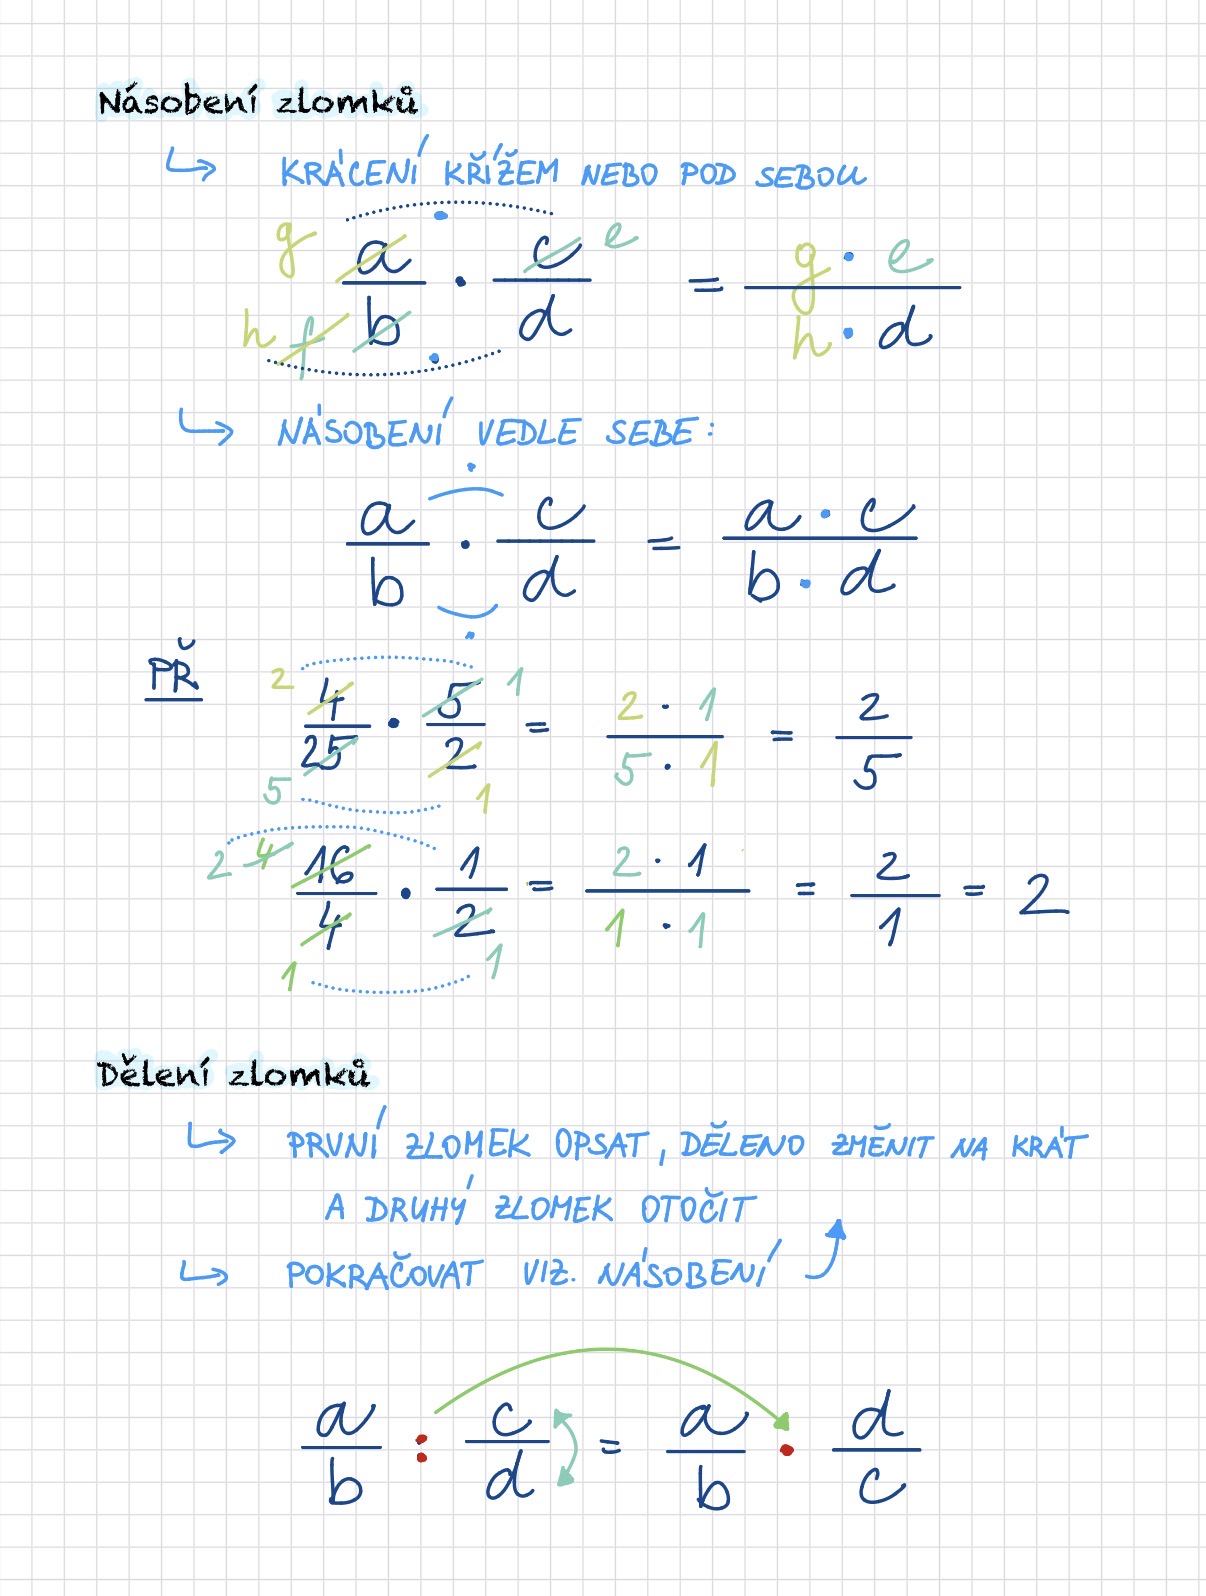 Násobení zlomků
↳ KRÁCENÍ KŘÍŽEM NEBO POD SEBOU
g a/b · c/d e = g · e / h · d
h f
↳ NÁSOBENÍ VEDLE SEBE:
a/b · c/d = a · c / b · d
PŘ
2 4/25 · 5/2 1 = 2 · 1 / 5 · 1 = 2/5
5 1
2 4 16/4 · 1/2 = 2 · 1 / 1 · 1 = 2/1 = 2
1 1
Dělení zlomků
↳ PRVNÍ ZLOMEK OPSAT, DĚLENO ZMĚNIT NA KRÁT
A DRUHÝ ZLOMEK OTOČIT
↳ POKRAČOVAT VIZ. NÁSOBENÍ
a/b : c/d = a/b · d/c